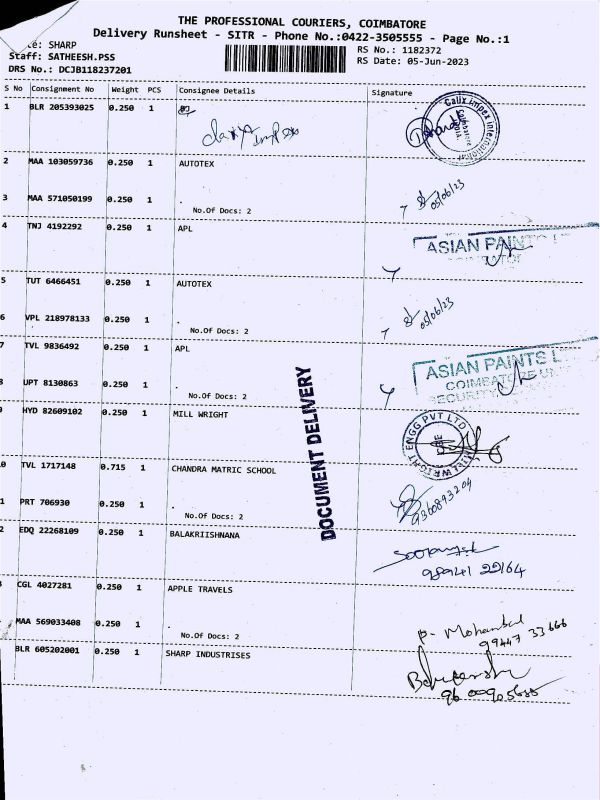 THE PROFESSIONAL COURIERS, COIMBATORE
Delivery Runsheet - SITR - Phone No.:0422-3505555 - Page No.:1
te: SHARP
RS No.: 1182372
Staff: SATHEESH.PSS
RS Date: 05-Jun-2023
DRS No.: DCJB118237201
S No Consignment No Weight PCS Consignee Details Signature
1 BLR 205393025 0.250 1
Calix Impex International
2 MAA 103059736 0.250 1 AUTOTEX
3 MAA 571050199 0.250 1 .
No.Of Docs: 2
05/06/23
4 TNJ 4192292 0.250 1 APL
ASIAN PAINTS
5 TUT 6466451 0.250 1 AUTOTEX
6 VPL 218978133 0.250 1 .
No.Of Docs: 2
05/06/23
7 TVL 9836492 0.250 1 APL
ASIAN PAINTS L
COIMBATORE
SECURITY
UPT 8130863 0.250 1 .
No.Of Docs: 2
HYD 82609102 0.250 1 MILL WRIGHT
ENGG PVT LTD
0 TVL 1717148 0.715 1 CHANDRA MATRIC SCHOOL
1 PRT 706930 0.250 1 .
No.Of Docs: 2
9360893204
DOCUMENT DELIVERY
2 EDQ 22268109 0.250 1 BALAKRIISHNANA
98941 22164
CGL 4027281 0.250 1 APPLE TRAVELS
MAA 569033408 0.250 1 .
No.Of Docs: 2
99447 33666
BLR 605202001 0.250 1 SHARP INDUSTRISES